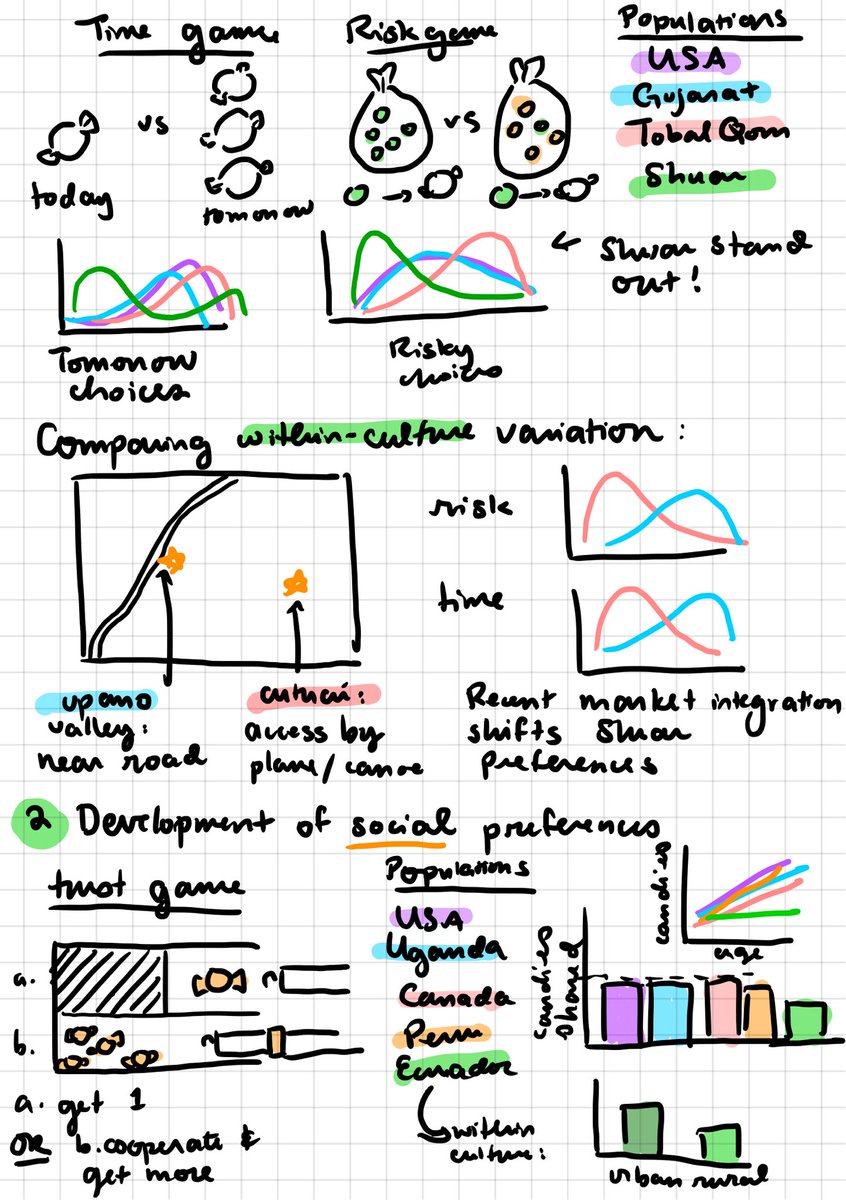 Time game
Risk game
Populations
USA
Gujarat
Tobal Qom
Shuar
vs
vs
today
tomorrow
← Shuar stand
out!
Tomorrow
choices
Risky
choices
Comparing within-culture variation:
risk
time
upano
valley:
near road
cutucú:
access by
plane/canoe
Recent market integration
shifts Shuar
preferences
2 Development of social preferences
trust game
Populations
USA
Uganda
Canada
Peru
Ecuador
within
culture:
a.
b.
a. get 1
OR b. cooperate &
get more
candies
age
candies
shared
urban rural